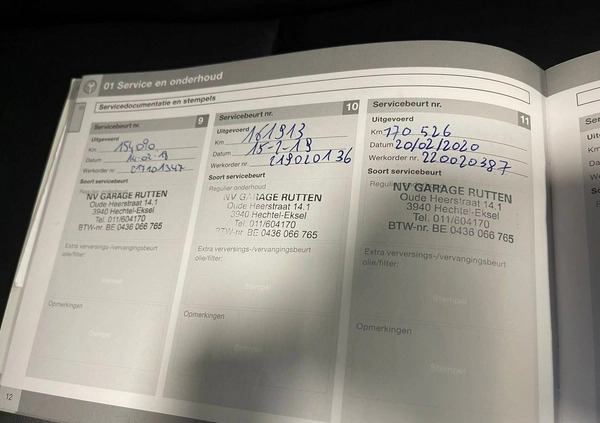 01 Service en onderhoud
Servicedocumentatie en stempels
Servicebeurt nr. 9
Uitgevoerd
Km
Datum
Werkorder nr.
Soort servicebeurt
NV GARAGE RUTTEN
Oude Heerstraat 14.1
3940 Hechtel-Eksel
Tel. 011/604170
BTW-nr. BE 0436 066 765
Extra verversings-/vervangingsbeurt
olie/filter:
Opmerkingen
Servicebeurt nr. 10
Uitgevoerd
Km 161913
Datum 15-2-19
Werkorder nr. 219020136
Soort servicebeurt
Regulier onderhoud
NV GARAGE RUTTEN
Oude Heerstraat 14.1
3940 Hechtel-Eksel
Tel. 011/604170
BTW-nr. BE 0436 066 765
Extra verversings-/vervangingsbeurt
olie/filter:
Stempel
Opmerkingen
Stempel
Servicebeurt nr. 11
Uitgevoerd
Km 170 526
Datum 20/02/2020
Werkorder nr. 220020387
Soort servicebeurt
NV GARAGE RUTTEN
Oude Heerstraat 14.1
3940 Hechtel-Eksel
Tel. 011/604170
BTW-nr. BE 0436 066 765
Extra verversings-/vervangingsbeurt
olie/filter:
Stempel
Opmerkingen
Stempel
12